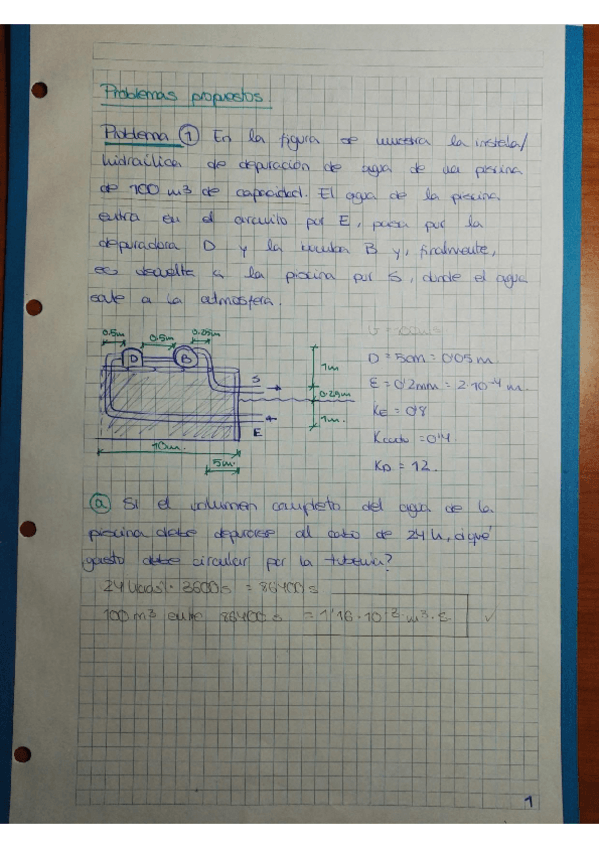 Problemas propuestos.
Problema ① En la figura se muestra la instala/
hidraúlica de depuración de agua de una piscina
de 100 m3 de capacidad. El agua de la piscina
entra en el circuito por E, pasa por la
depuradora D y la bomba B y, finalmente,
es devuelta a la piscina por S, donde el agua
sale a la atmosfera.
0.5m 0.5m 0.25m
D B
1m
S
0.25m
E
1m.
10m.
5m.
D = 5cm = 0'05 m.
E = 0'2mm = 2·10⁻⁴ m.
KE = 0'8
Kcodo = 0'4
KD = 12.
ⓐ Si el volumen completo del agua de la
piscina debe depurarse al cabo de 24 h, ¿qué
gasto debe circular por la tubería?
24 horas · 3600 s = 86400 s
100 m³ 86400 = 1'16·10⁻³ m³·s
1